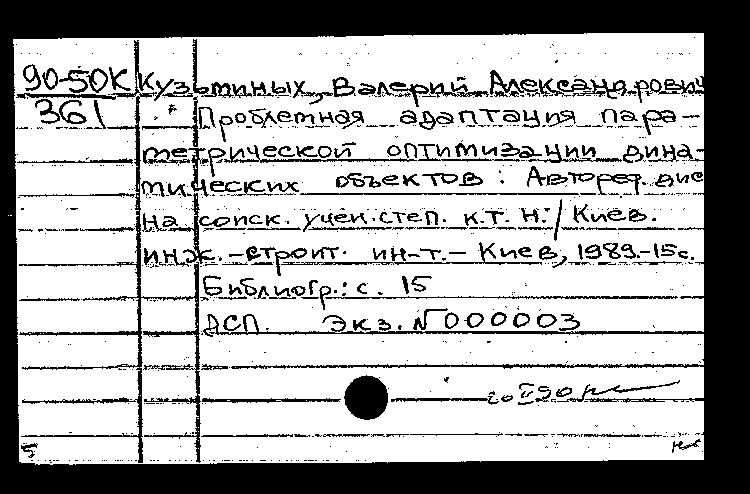 90-50К Кузьминых, Валерий Александрович
361 Проблемная адаптация пара-
метрической оптимизации дина-
мических объектов : Автореф. дис
на соиск. учен. степ. к.т.н. / Киев.
инж.-строит. ин-т. - Киев, 1989.-15с.
Библиогр.: с. 15
ДСП. Экз. №000003
20 II 90
5